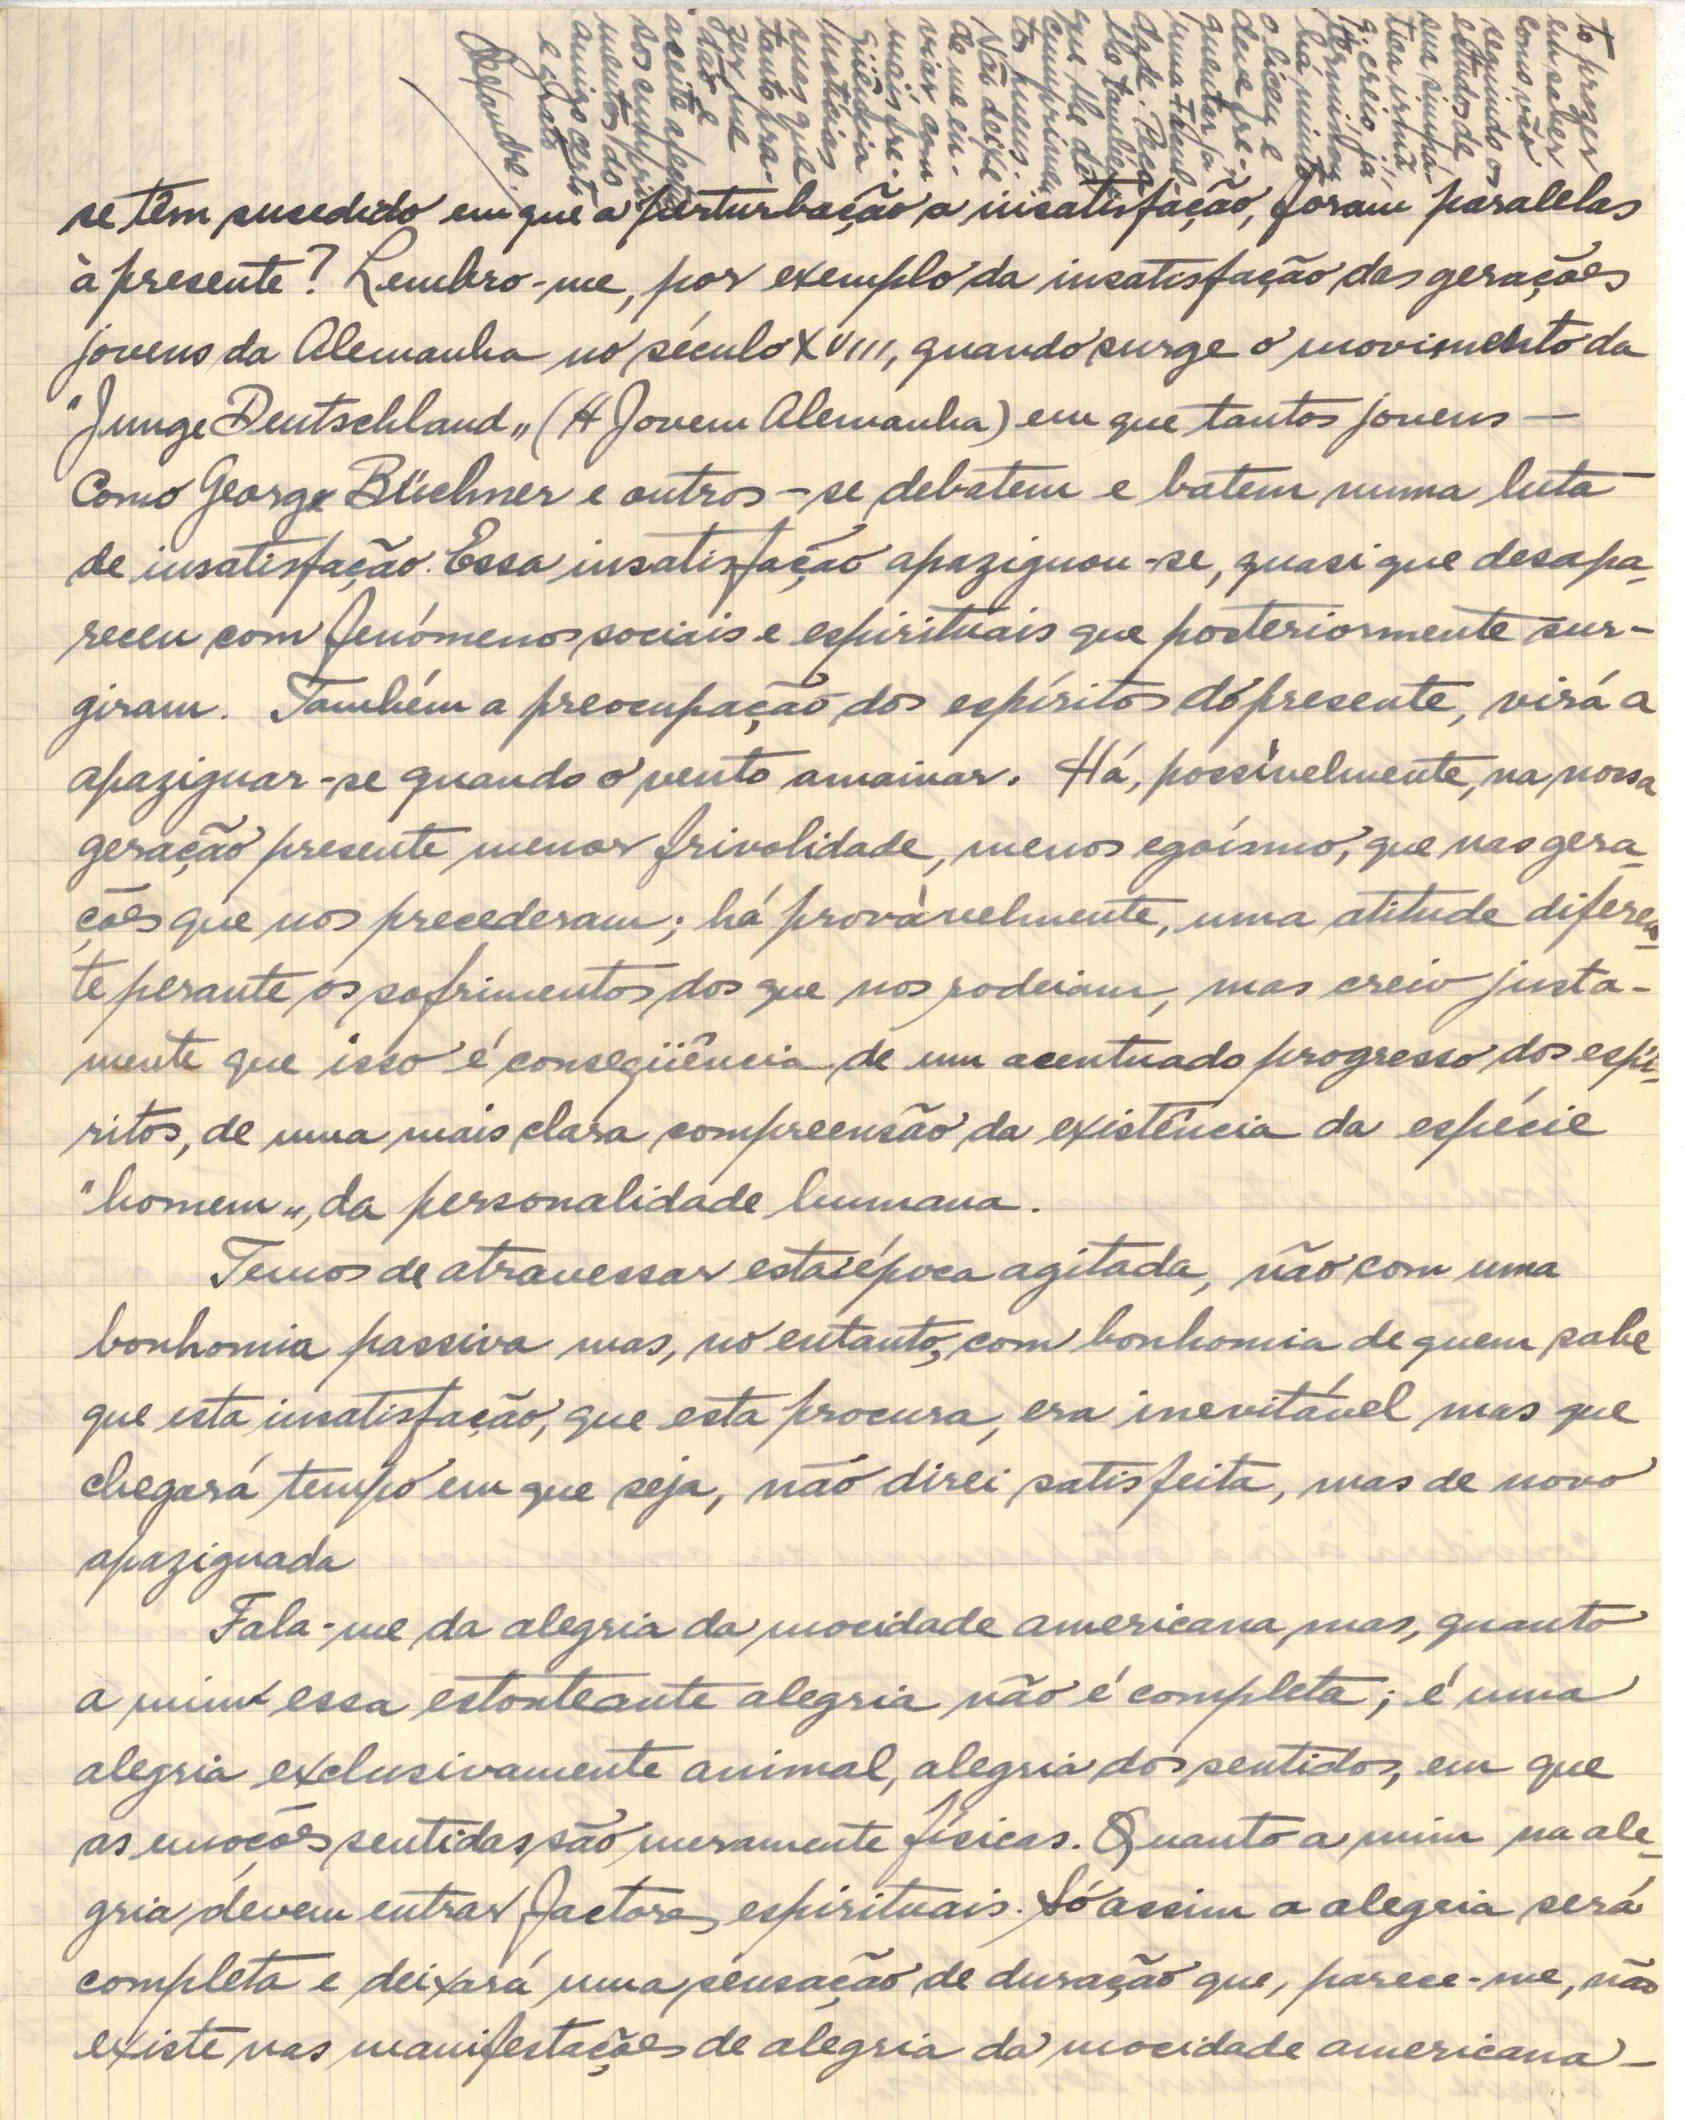 se têm sucedido em que a perturbação a insatisfação, foram paralelas
à presente? Lembro-me, por exemplo da insatisfação das gerações
jovens da Alemanha no século XVIII, quando surge o movimento da
"Junge Deutschland„ (A Jovem Alemanha) em que tantos jovens —
como George Büchner e outros - se debatem e batem numa luta
de insatisfação. Essa insatisfação apaziguou-se, quasi que desapa-
receu com fenómenos sociais e espirituais que posteriormente sur-
giram. Também a preocupação dos espíritos do presente, virá a
apaziguar-se quando o vento amainar. Há, possìvelmente, na nossa
geração presente menor frivolidade, menos egoísmo, que nas gera-
ções que nos precederam; há provàvelmente, uma atitude diferen-
te perante os sofrimentos dos que nos rodeiam, mas creio justa-
mente que isso é conseqüência de um acentuado progresso dos espí-
ritos, de uma mais clara compreensão da existência da espécie
"homem„, da personalidade humana.
Temos de atravessar esta época agitada, não com uma
bonhomia passiva mas, no entanto, com bonhomia de quem sabe
que esta insatisfação, que esta procura, era inevitável mas que
chegará tempo em que seja, não direi satisfeita, mas de novo
apaziguada
Fala-me da alegria da mocidade americana, mas, quanto
a mim essa estonteante alegria não é completa; é uma
alegria exclusivamente animal, alegria dos sentidos, em que
as emoções sentidas são meramente físicas. Quanto a mim na ale-
gria devem entrar factores espirituais. Só assim a alegria será
completa e deixará uma sensação de duração que, parece-me, não
existe nas manifestações de alegria da mocidade americana -
to prazer
em saber
como vão
seguindo os
estudos de
sua simpá-
tica irmã,
q. creio já
há muito
o liceu e
deve fre-
quentar já
uma Facul-
dade. Peço-
lhe também
que lhe dê
cumprimen-
tos meus.
Não deixe
de me en-
viar com
mais fre-
qüência
notícias
suas que
tanto pra-
zer me
dão e
aceite afec-
tuosos cumpri-
mentos do
amigo certo
e grato